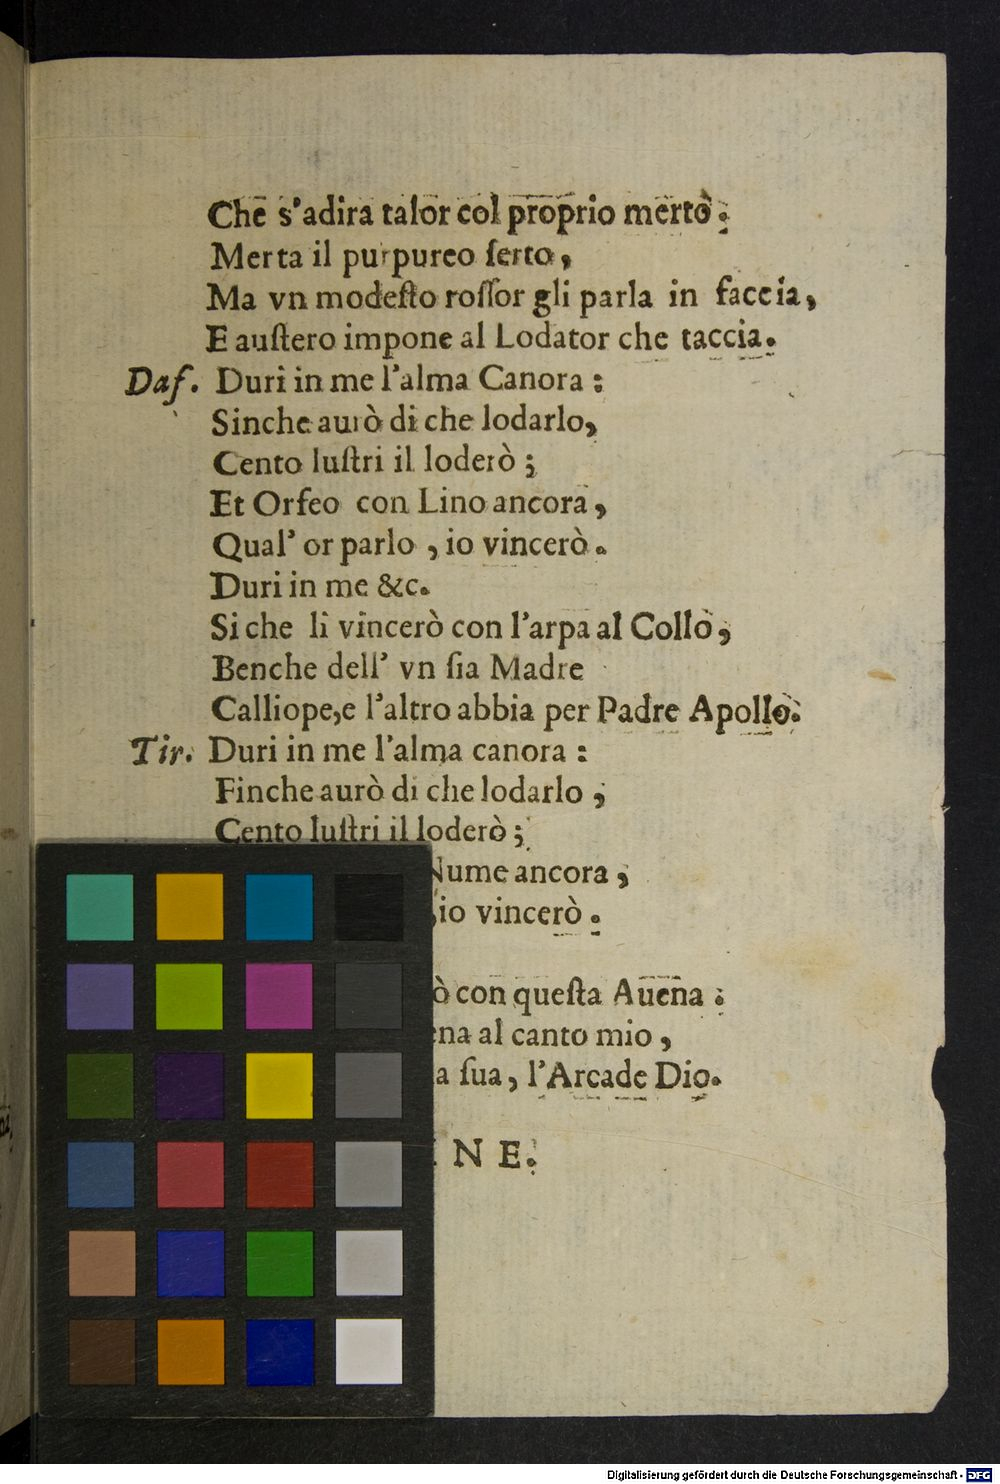 Che s'adira talor col proprio merto:
Merta il purpureo ſerto,
Ma vn modeſto roſſor gli parla in faccia,
E auſtero impone al Lodator che taccia.
Daf. Duri in me l'alma Canora:
Sinche aurò di che lodarlo,
Cento luſtri il loderò;
Et Orfeo con Lino ancora,
Qual' or parlo, io vincerò.
Duri in me &c.
Si che li vincerò con l'arpa al Collo,
Benche dell' vn ſia Madre
Calliope, e l'altro abbia per Padre Apollo.
Tir. Duri in me l'alma canora:
Finche aurò di che lodarlo,
Cento luſtri il loderò;
Nume ancora,
io vincerò.
con queſta Auena:
al canto mio,
ſua, l'Arcade Dio.
N E.
Digitalisierung gefördert durch die Deutsche Forschungsgemeinschaft - DFG